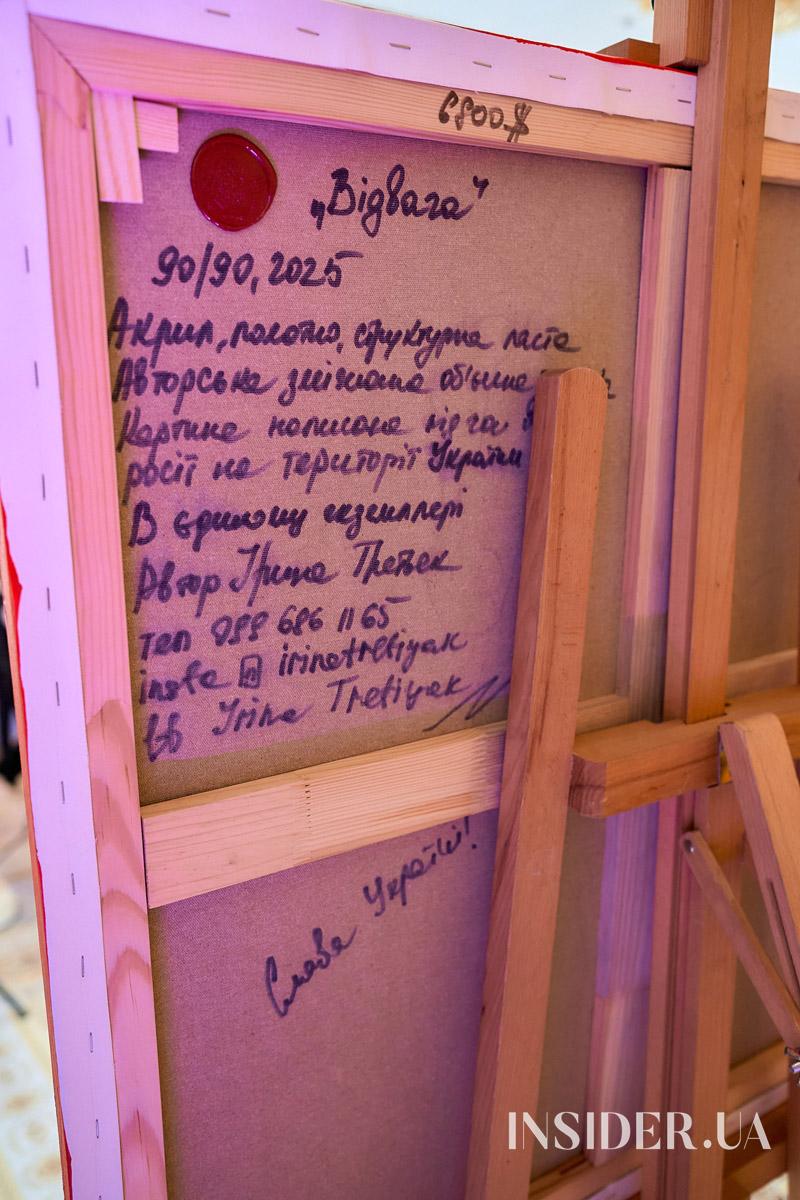 6800$
„Відвага"
90/90, 2025
Акрил, полотно, структурна паста
Авторська змішана об'ємна
Картина написана під час
росії на території України
В єдиному екземплярі
Автор Ірина Третяк
тел 099 686 11 65
insta irinatretiyak
fb Irina Tretiyak
Слава Україні!
INSIDER.UA